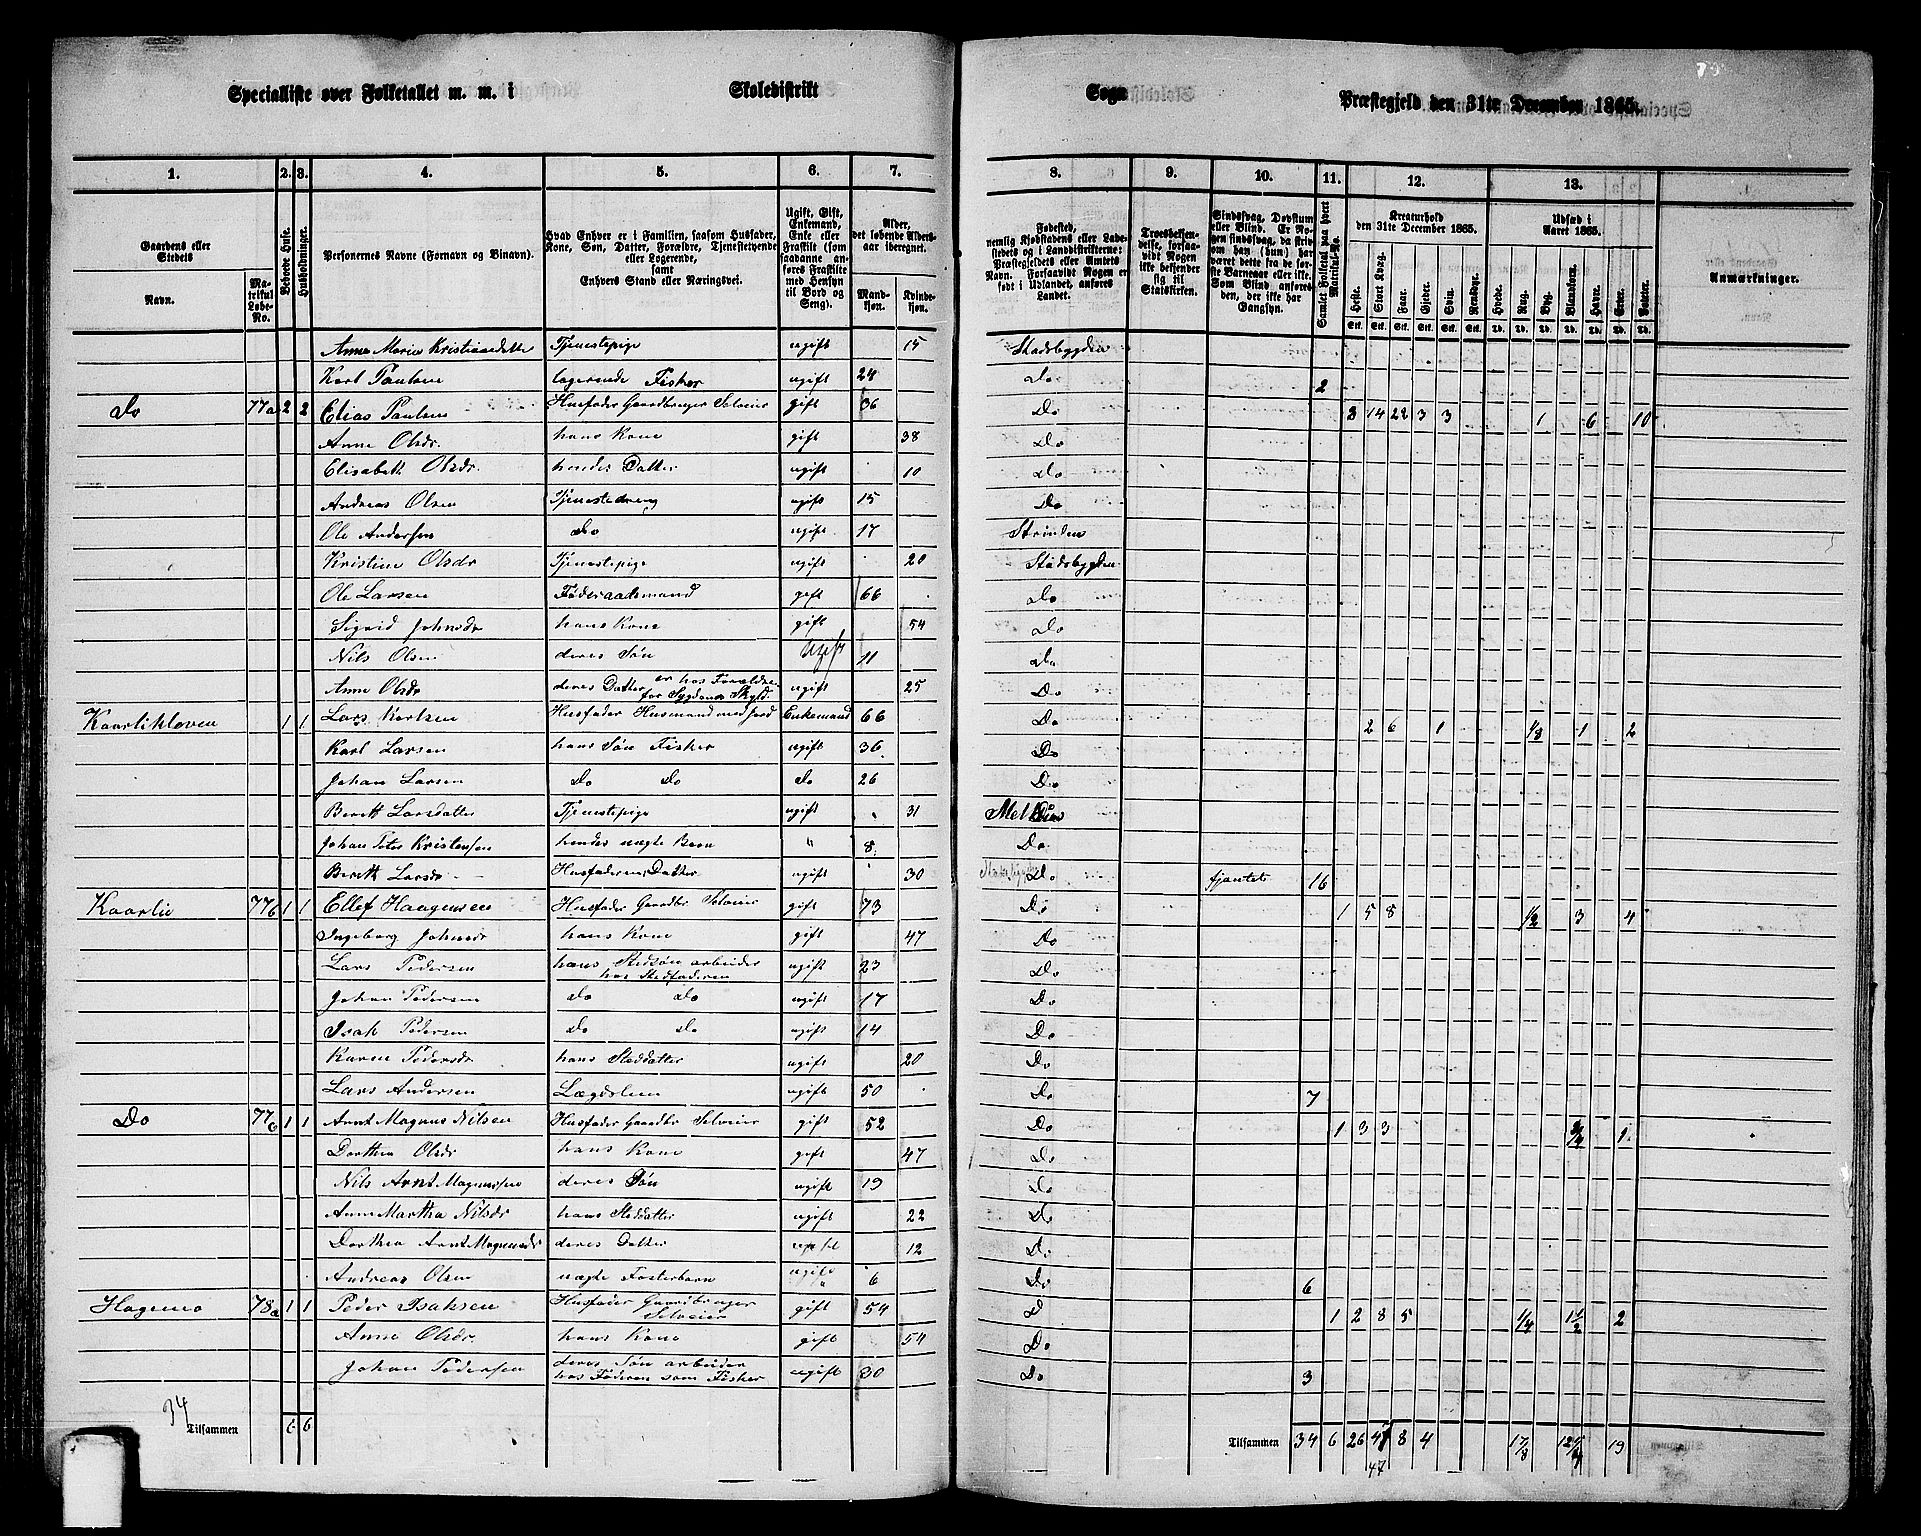 Specialliste over Folketallet m. m. i Skoledistrikt Sogn Præstegjeld den 31te December 1865.
1. 2. 3. 4. 5. 6. 7. 8. 9. 10. 11. 12. 13.
Gaardens eller Stedets
Navn.
Matrikul Løbe-No.
Beboede Huse.
Husholdninger.
Personernes Navne (Fornavn og Binavn).
Hvad Enhver er i Familien, saasom Husfader, Kone, Søn, Datter, Forældre, Tjenestetyende eller Logerende, samt Enhvers Stand eller Næringsvei.
Ugift, Gift, Enkemand, Enke eller Fraskilt (som saadanne anføres Fraskilte med Hensyn til Bord og Seng).
Alder, det løbende Aldersaar iberegnet.
Mandkjøn. Kvindekjøn.
Fødested, nemlig Kjøbstadens eller Ladestedets og i Landdistrikterne: Præstegjeldets eller Amtets Navn. Forsaavidt Nogen er født i Udlandet, anføres Landet.
Troesbekjendelse, forsaavidt Nogen ikke bekjender sig til Statskirken.
Sindssvag, Døvstum eller Blind. Er Nogen sindssvag, da skrives han (hun) har været dette fra de første Barneaar eller ikke. Som Blind anføres den, der ikke har Gangsyn.
Samlet Folketal paa hvert Matrikul-No.
Kreaturhold den 31te December 1865.
Heste. Stort Kvæg. Faar. Gjeder. Svin. Rensdyr.
Udsæd i Aaret 1865.
Hvede. Rug. Byg. Blandkorn. Havre. Erter. Poteter.
Anmærkninger.
Anne Marie Kristiansdatter Tjenestepige ugift 15 Stadsbygden
Karl Paulsen logerende Fisker ugift 24 Do 2
Do 77a 2 2 Elias Paulsen Husfader Gaardbruger Selveier gift 36 Do 3 14 22 3 3 1 6 10
Anne Olsdr. hans Kone gift 38 Do
Elisabeth Olsdr. hendes Datter ugift 10 Do
Andreas Olsen Tjenestedreng ugift 15 Do
Ole Andersen Do ugift 17 Strinden
Kristine Olsdr Tjenestepige ugift 20 Stadsbygden
Ole Larsen Føderaadsmand gift 66 Do
Sigrid Johnsdr hans Kone gift 54 Do
Nils Olsen deres Søn Ugift 11 Do
Anne Olsdr deres Datter er hos Forældre for Sygdoms Skyld ugift 25 Do
Kaarlikloven 1 1 Lars Karlsen Husfader Husmand med Jord Enkemand 66 Do 2 6 1 1/8 1 2
Karl Larsen hans Søn Fisker ugift 36 Do
Johan Larsen Do Do Do 26 Do
Berett Larsdatter Tjenestepige ugift 31 Melhus
Johan Peter Kristensen hendes uægte Barn " 8 Do
Berett Larsdr Husfaderens Datter ugift 30 Do fjantet 16
Kaarlie 77b 1 1 Ellef Haagensen Husfader Gaardbr Selveier gift 73 Do 1 5 8 1/2 3 4
Ingeborg Johnsdr hans Kone gift 47 Do
Lars Pedersen hans Stedsøn arbeider hos Stedfaderen ugift 23 Do
Johan Pedersen Do Do ugift 17 Do
Isak Pedersen Do Do ugift 14 Do
Karen Pedersdr hans Steddatter ugift 20 Do
Lars Andersen Lægdslem ugift 50 Do 7
Do 77c 1 1 Arnt Magnus Nilsen Husfader Gaardbr Selveier gift 52 Do 1 3 3 3/4 1
Dorthea Olsdr hans Kone gift 47 Do
Nils Arnt Magnussen deres Søn ugift 19 Do
Anne Martha Nilsdr hans Steddatter ugift 22 Do
Dorthea Arnt Magnusdr deres Datter ugift 12 Do
Andreas Olsen uægte Fosterbarn ugift 6 Do 6
Hagemo 78a 1 1 Peder Isaksen Husfader Gaardbruger Selveier gift 54 D 1 2 8 5 1/4 1 1/2 2
Anne Olsdr hans Kone gift 54 Do
Johan Pedersen deres Søn arbeider hos Faderen som Fisker ugift 30 Do 3
34 Tilsammen 6 6 Tilsammen 34 6 26 47 8 4 1 7/8 12 1/4 19
47